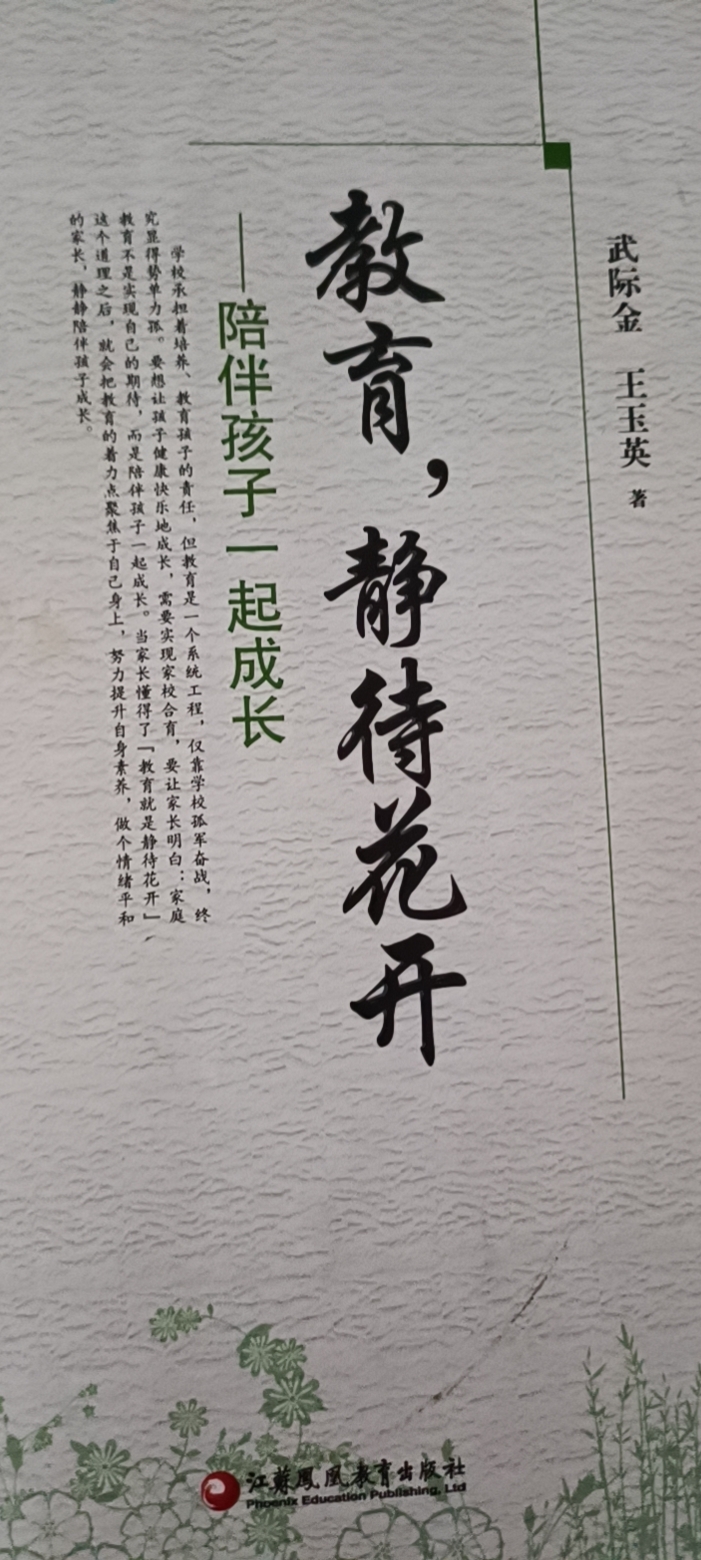 武际金 王玉英 著
教育，静待花开
——陪伴孩子一起成长
学校承担着培养、教育孩子的责任，但教育是一个系统工程，仅靠学校孤军奋战，终
究显得势单力孤。要想让孩子健康快乐地成长，需要实现家校合育，要让家长明白：家庭
教育不是实现自己的期待，而是陪伴孩子一起成长。当家长懂得了「教育就是静待花开」
这个道理之后，就会把教育的着力点聚焦于自己身上，努力提升自身素养，做个情绪平和
的家长，静静陪伴孩子成长。
江苏凤凰教育出版社
Phoenix Education Publishing, Ltd